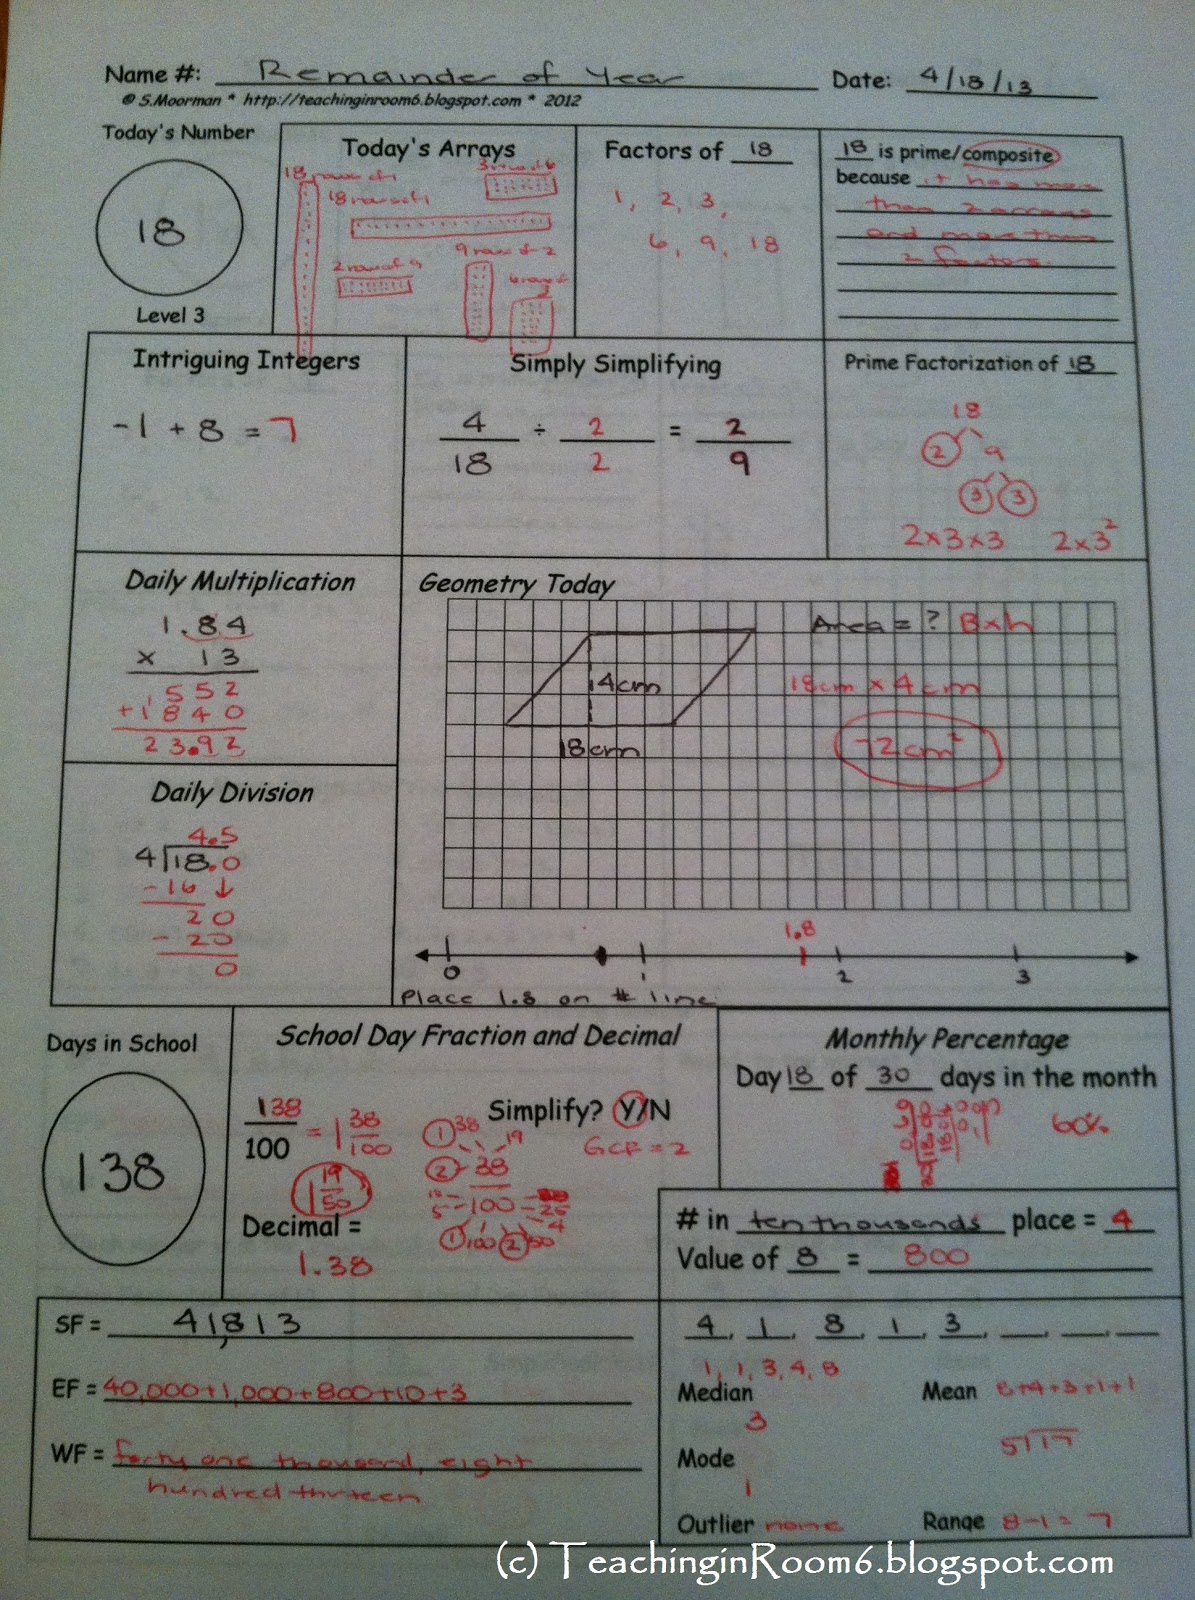 Name #: Remainder of Year Date: 4/18/13
© S.Moorman * http://teachinginroom6.blogspot.com * 2012
Today's Number
18
Level 3
Today's Arrays
18 rows of 1
18 rows of 1
3 rows of 6
2 rows of 9
9 rows of 2
6 rows of 3
Factors of 18
1, 2, 3,
6, 9, 18
18 is prime/composite
because it has more
than 2 arrays
and more than
2 factors.
Intriguing Integers
-1 + 8 = 7
Simply Simplifying
4 ÷ 2 = 2
18 2 9
Prime Factorization of 18
18
2 9
3 3
2x3x3 2x3²
Daily Multiplication
1.84
x 13
552
+1840
23.92
Daily Division
4.5
4 18.0
-16 ↓
20
- 20
0
Geometry Today
Area = ? B x h
4cm
18cm x 4cm
18cm
72cm²
1.8
0 1 2 3
Place 1.8 on # line
Days in School
138
School Day Fraction and Decimal
138 = 1 38
100 100
1 19
50
Simplify? Y/N
GCF = 2
1 38
2 19
38
100
1 100 2 50
4
Decimal =
1.38
Monthly Percentage
Day 18 of 30 days in the month
60%
# in ten thousands place = 4
Value of 8 = 800
SF = 41,813
EF = 40,000+1,000+800+10+3
WF = forty one thousand, eight
hundred thirteen
4, 1, 8, 1, 3, , ,
1, 1, 3, 4, 8
Median
3
Mean 8+4+3+1+1
5 17
Mode
1
Outlier none
Range 8-1 = 7
(c) TeachinginRoom6.blogspot.com